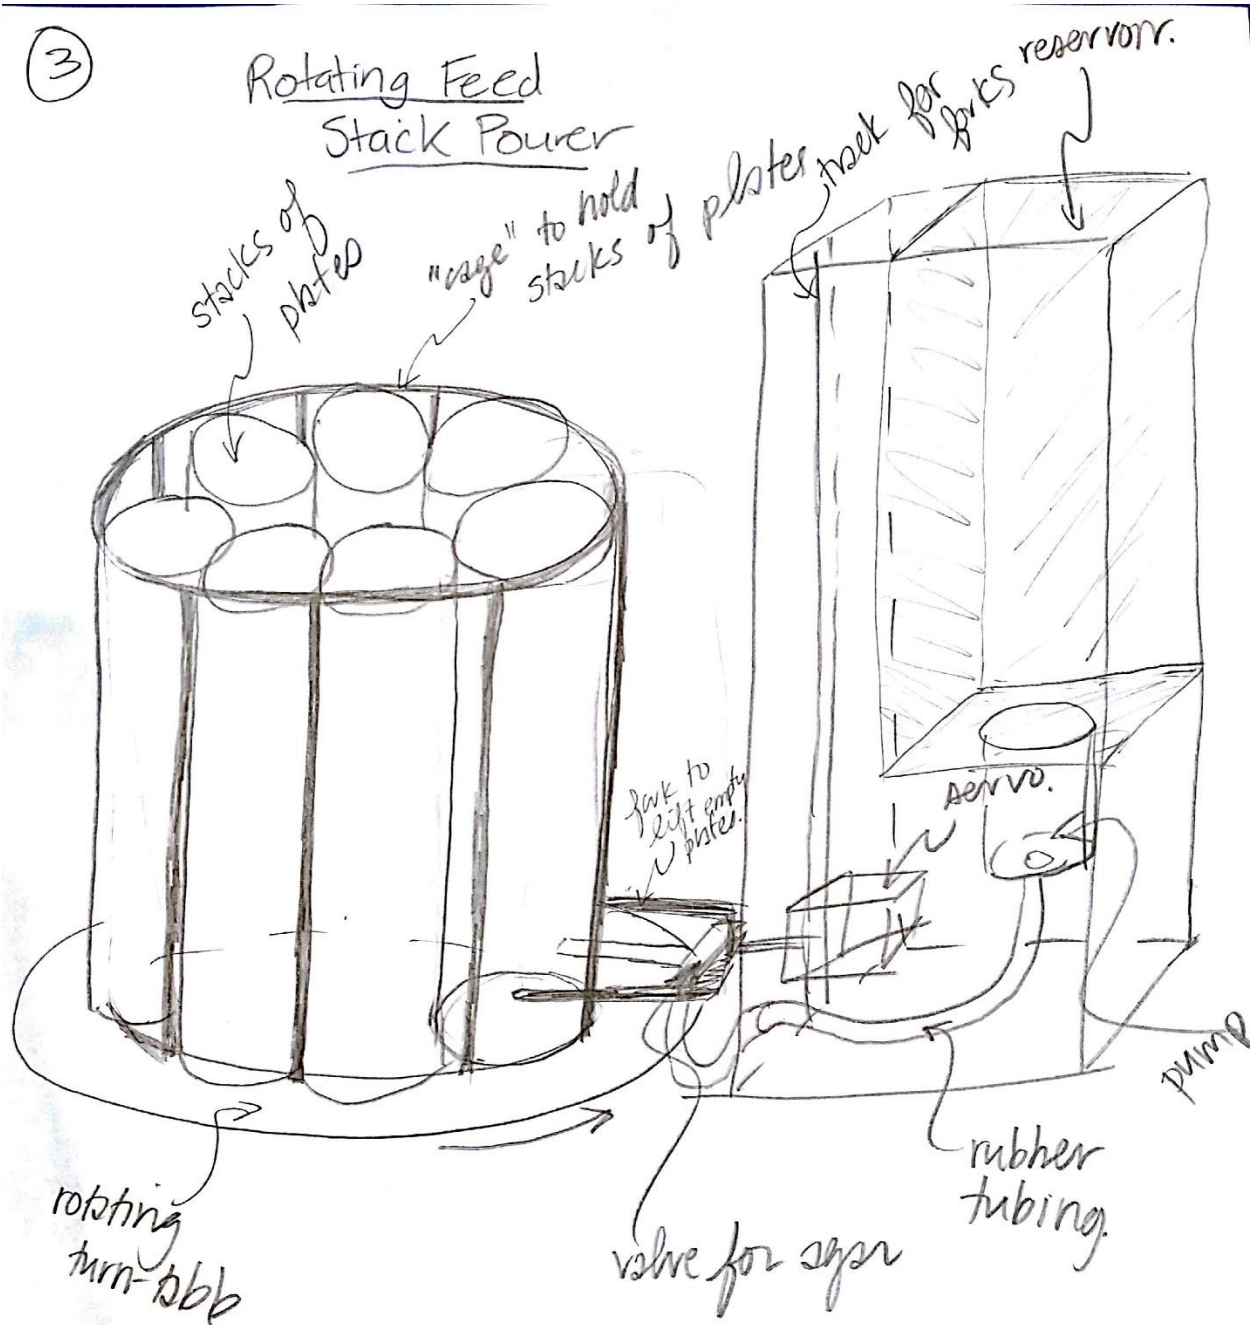 3
Rotating Feed
Stack Pourer
stacks of
plates
"cage" to hold
stacks of plates
track for
forks
reservoir.
fork to
lift empty
plates.
servo.
pump
rubber
tubing.
valve for agar
rotating
turn-table